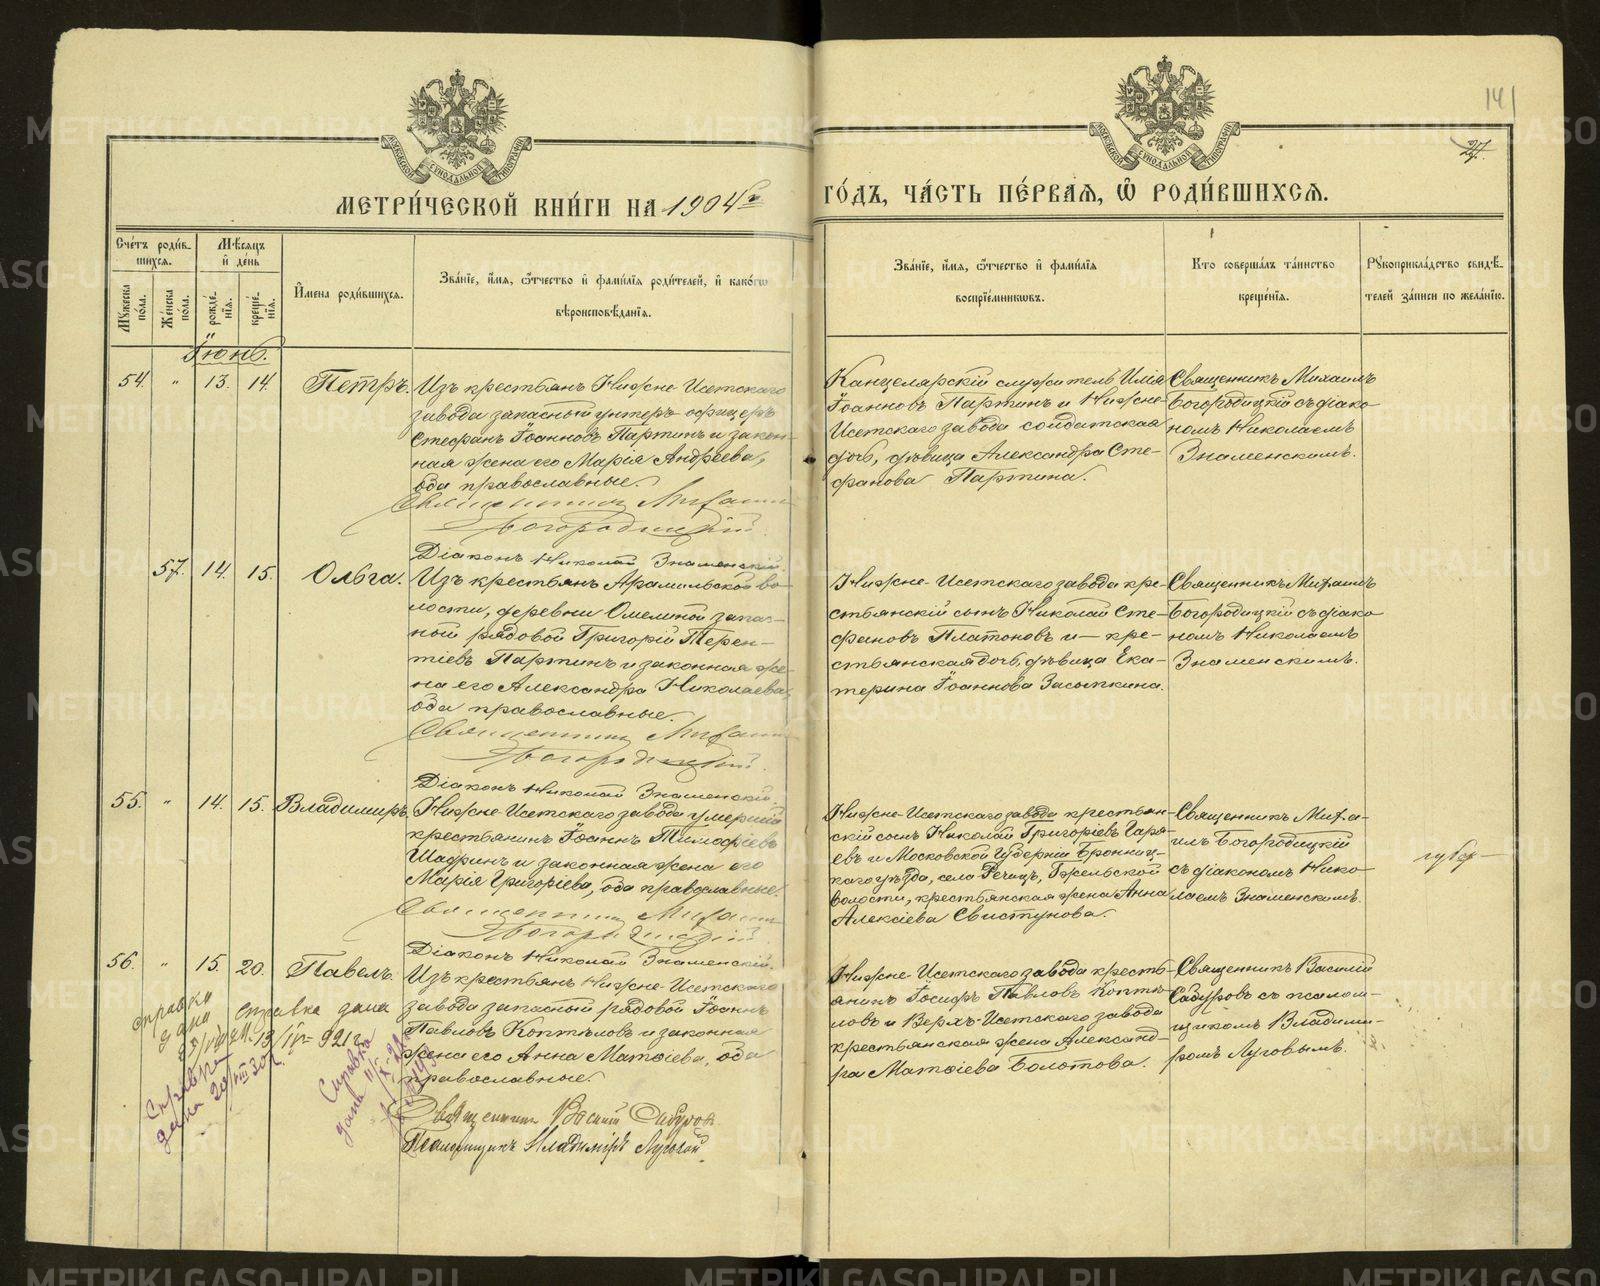 141
27.
МОСКОВСКОЙ СѴНОДАЛЬНОЙ ТИПОГРАФІИ
МОСКОВСКОЙ СѴНОДАЛЬНОЙ ТИПОГРАФІИ
МЕТРИ́ЧЕСКОЙ КНИ́ГИ НА 1904й ГО́ДЪ, ЧА́СТЬ ПЕ́РВАЯ, Ѽ РОДИ́ВШИХСѦ.
Сче́тъ роди́в-
шихсѧ.
Мꙋ́жеска по́ла.
Же́нска по́ла.
Мѣ́сѧцъ
и҆ де́нь
рожде́-
нїѧ.
креще́-
нїѧ.
И҆мена̀ роди́вшихсѧ.
Зва́нїе, и҆́мѧ, ѻ҆́тчество и҆ фами́лїѧ роди́телей, и҆ како́гѡ
вѣроисповѣ́данїѧ.
Зва́нїе, и҆́мѧ, ѻ҆́тчество и҆ фами́лїѧ
воспрїе́мникѡвъ.
Кто̀ соверша́лъ та́инство
креще́нїѧ.
Рꙋкоприкла́дство свидѣ́-
телей за́писи по жела́нїю.
Іюнь.
54. " 13. 14. Петръ.
Изъ крестьянъ Нижне-Исетскаго
завода запасный унтеръ-офицеръ
Стефанъ Іоанновъ Партинъ и закон-
ная жена его Марія Андреева,
оба православные.
Священникъ Михаилъ
Богородицкій
Діаконъ Николай Знаменскій.
Канцелярскій служитель Илія
Іоанновъ Партинъ и Нижне-
Исетскаго завода солдатская
дочь, дѣвица Александра Сте-
фанова Партина.
Священникъ Михаилъ
Богородицкій съ діако-
номъ Николаемъ
Знаменскимъ.
57. 14. 15. Ольга.
Изъ крестьянъ Арамильской во-
лости, деревни запас-
ный рядовой Григорій Терен-
тіевъ Партинъ и законная же-
на его Александра Николаева,
оба православные.
Священникъ Михаилъ
Богородицкій
Діаконъ Николай Знаменскій.
Нижне-Исетскаго завода кре-
стьянскій сынъ Николай Сте-
фановъ Платоновъ и — кре-
стьянская дочь, дѣвица Ека-
терина Іоаннова Засыпкина.
Священникъ Михаилъ
Богородицкій съ діако-
номъ Николаемъ
Знаменскимъ.
55. " 14. 15. Владимиръ.
Нижне-Исетскаго завода умершій
крестьянинъ Іоаннъ Тимофіевъ
Шадринъ и законная жена его
Марія Григоріева, оба православные.
Священникъ Михаилъ
Богородицкій
Діаконъ Николай Знаменскій.
Нижне-Исетскаго завода крестьян-
скій сынъ Николай Григоріевъ Гаря-
евъ и Московской Губерніи Бронниц-
каго уѣзда, села Речицъ, Гжельской
волости, крестьянская жена Анна
Алексіева Свистунова.
Священникъ Миха-
илъ Богородицкій
съ діакономъ Нико-
лаемъ Знаменскимъ.
56. " 15. 20. Павелъ.
Изъ крестьянъ Нижне-Исетскаго
завода запасный рядовой Іоаннъ
Павловъ Коптѣловъ и законная
жена его Анна Матѳіева, оба
православные.
Священникъ Василій Сабуровъ
Псаломщикъ Владиміръ Луговой
Нижне-Исетскаго завода кресть-
янинъ Іосифъ Павловъ Коптѣ-
ловъ и Верхъ-Исетскаго завода
крестьянская жена Александ-
ра Матѳіева Болотова.
Священникъ Василій
Сабуровъ съ псалом-
щикомъ Владими-
ромъ Луговымъ.
справка
дана
справка дана
13/IV 921 г.
Справка
дана 29/VIII 30 г.
Справка
дана
METRIKI.GASO-URAL.RU